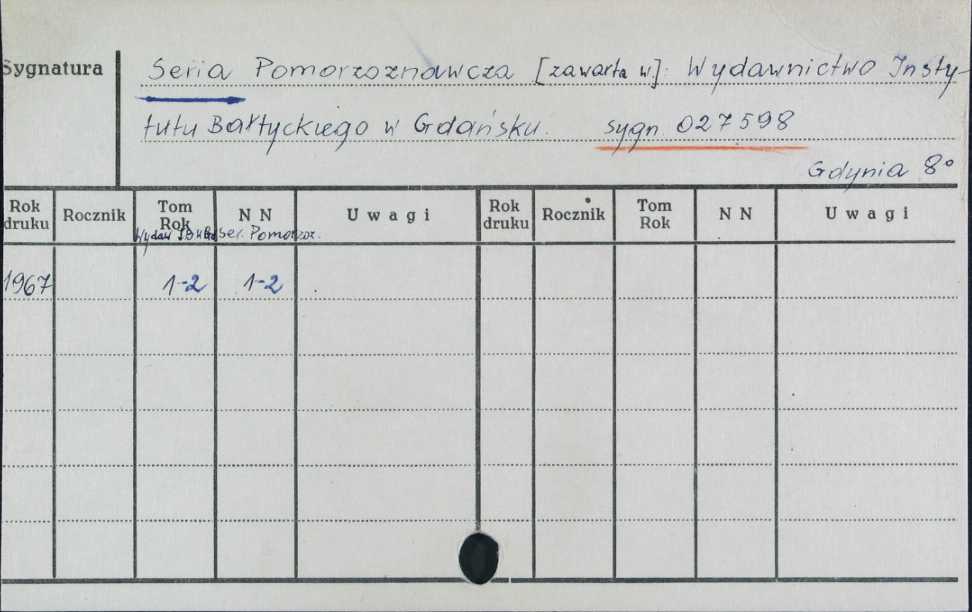 Sygnatura
Seria Pomorzoznawcza [zawarta w]: Wydawnictwo Insty-
tutu Bałtyckiego w Gdańsku. sygn 027598
Gdynia 8°
Rok druku Rocznik Tom Rok N N Uwagi Rok druku Rocznik Tom Rok N N Uwagi
Ser. Pomorzoz.
1967 1-2 1-2